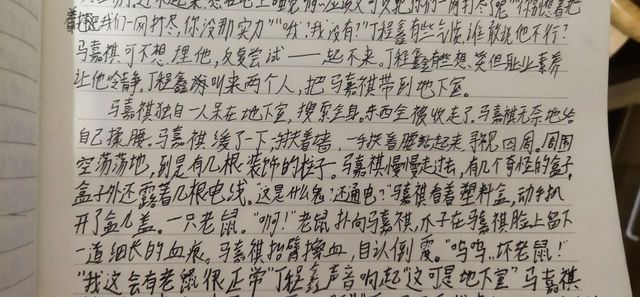 把我们一网打尽,你没那实力”“哦?我没有?”丁程鑫有些气恼,谁敢说他不行?
马嘉祺可不想理他,反复尝试——起不来。丁程鑫有些想笑但职业素养
让他冷静,丁程鑫叫来两个人,把马嘉祺带到地下室。
马嘉祺独自一人呆在地下室,搜索全身。东西全被收走了。马嘉祺无奈地给
自己揉腰。马嘉祺缓了一下,一手扶着墙,一手扶着腰站起来,寻视四周。周围
空荡荡地,到是有几根装饰的柱子。马嘉祺慢慢走过去,有几个奇怪的盒子,
盒子外还露着几根电线。“这是什么鬼?还通电?”马嘉祺看着塑料盒,动手扒
开了盒儿盖。一只老鼠。“啊!”老鼠扑向马嘉祺,爪子在马嘉祺脸上留下
一道细长的血痕。马嘉祺抬臂擦血,自认倒霉。“呜呜,坏老鼠!”
“我这会有老鼠很正常”丁程鑫声音响起“这可是地下室”马嘉祺